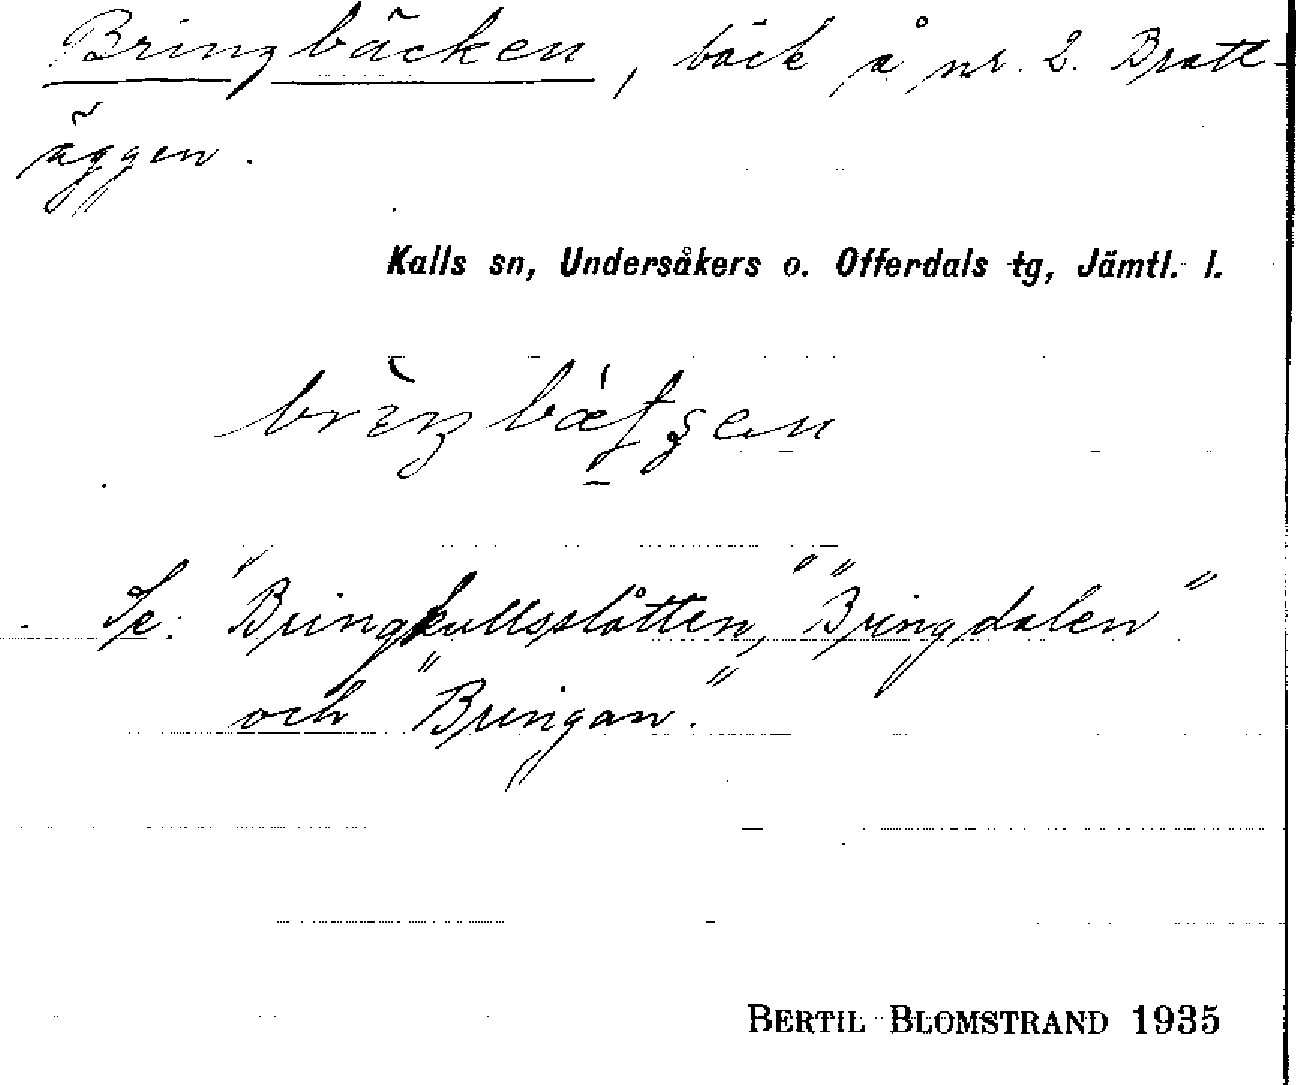 Bringbäcken, bäck å nr. 2. Bratt-
äggen.
Kalls sn, Undersåkers o. Offerdals tg, Jämtl. l.
Se: "Bringkullsslåtten," "Bringdalen"
och "Bringan".
BERTIL BLOMSTRAND 1935